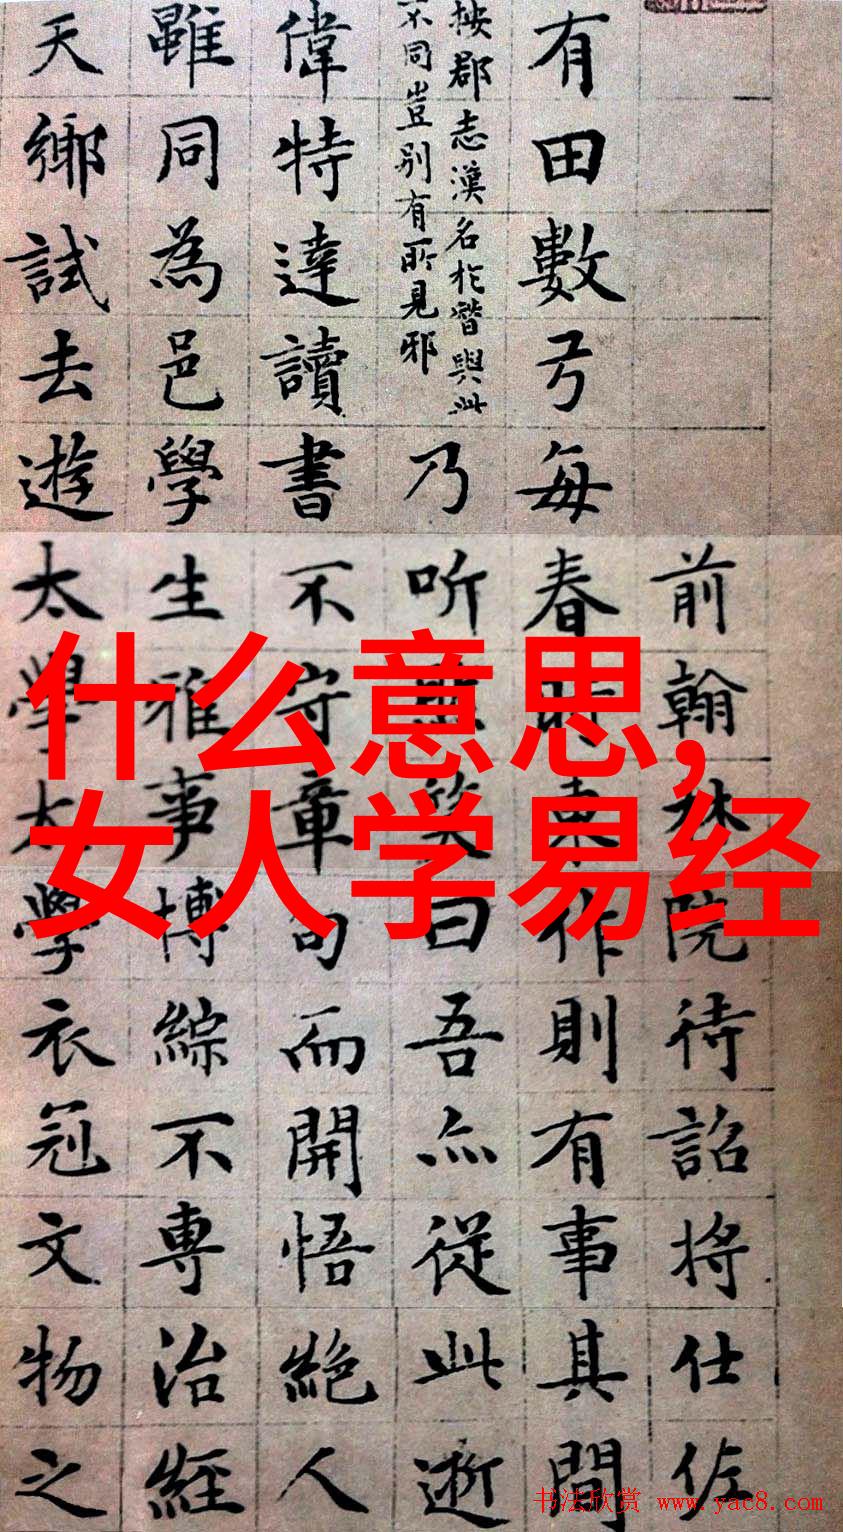 前翰林院待詔将仕佐
有田數弓每春時東作則有事其間
按郡志漢名於與此
不同豈别有所見邪
乃听然笑曰吾亦從此逝
偉特達讀書不守章句而開悟絕人
雖同為邑學生雅事博綜不専治經
天鄉試去遊太學太學衣冠文物之
什么意思,
女人学易经
书法欣赏 www.yac8.com